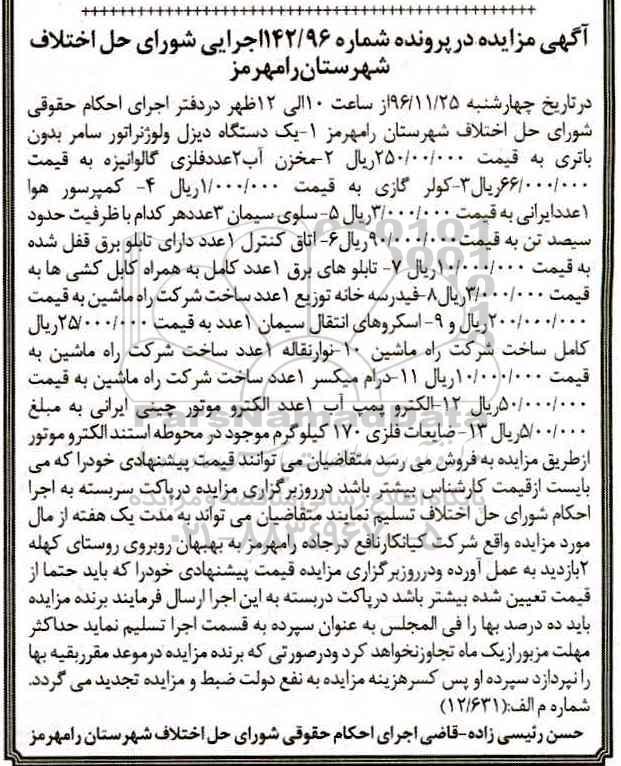 آگهی مزایده در پرونده شماره ۱۴۲/۹۶اجرایی شورای حل اختلاف
شهرستان رامهرمز
درتاریخ چهارشنبه ۹۶/۱۱/۲۵از ساعت ۱۰الی ۱۲ظهر دردفتر اجرای احکام حقوقی
شورای حل اختلاف شهرستان رامهرمز ۱-یک دستگاه دیزل ولوژنراتور سامر بدون
باتری به قیمت ۲۵۰/۰۰/۰۰۰ریال ۲-مخزن آب۲عددفلزی گالوانیزه به قیمت
۶۶/۰۰۰/۰۰۰ریال۳-کولر گازی به قیمت ۱/۰۰۰/۰۰۰ریال ۴- کمپرسور هوا
۱عددایرانی به قیمت ۳/۰۰۰/۰۰۰ریال ۵-سلوی سیمان ۳عددهر کدام با ظرفیت حدود
سیصد تن به قیمت ۹۰/۰۰۰/۰۰۰ریال۶- اتاق کنترل ۱عدد دارای تابلو برق قفل شده
به قیمت ۱۰/۰۰۰/۰۰۰ریال ۷- تابلو های برق ۱عدد کامل به همراه کابل کشی ها به
قیمت ۳/۰۰۰/۰۰۰ریال۸-فیدرسه خانه توزیع ۱عدد ساخت شرکت راه ماشین به قیمت
۲۰۰/۰۰۰/۰۰۰ریال و ۹- اسکروهای انتقال سیمان ۱عدد به قیمت ۲۵/۰۰۰/۰۰۰ریال
کامل ساخت شرکت راه ماشین ۱۰-نوارنقاله ۱عدد ساخت شرکت راه ماشین به
قیمت ۱۰/۰۰۰/۰۰۰ریال ۱۱-درام میکسر ۱عدد ساخت شرکت راه ماشین به قیمت
۵۰/۰۰۰/۰۰۰ریال ۱۲-الکترو پمپ آب ۱عدد الکترو موتور چینی ایرانی به مبلغ
۵/۰۰/۰۰۰ریال ۱۳- ضایعات فلزی ۱۷۰ کیلو گرم موجود در محوطه استند الکترو موتور
ازطریق مزایده به فروش می رسد متقاضیان می توانند قیمت پیشنهادی خودرا که می
بایست ازقیمت کارشناس بیشتر باشد درروزبرگزاری مزایده درپاکت سربسته به اجرا
احکام شورای حل اختلاف تسلیم نمایند متقاضیان می تواند به مدت یک هفته از مال
مورد مزایده واقع شرکت کیانکارنافع درجاده رامهرمز به بهبهان روبروی روستای کهله
۲بازدید به عمل آورده ودرروزبرگزاری مزایده قیمت پیشنهادی خودرا که باید حتما از
قیمت تعیین شده بیشتر باشد درپاکت دربسته به این اجرا ارسال فرمایند برنده مزایده
باید ده درصد بها را فی المجلس به عنوان سپرده به قسمت اجرا تسلیم نماید حداکثر
مهلت مزبورازیک ماه تجاوزنخواهد کرد ودرصورتی که برنده مزایده درموعد مقرربقیه بها
را نپردازد سپرده او پس کسرهزینه مزایده به نفع دولت ضبط و مزایده تجدید می گردد.
شماره م الف:(۱۲/۶۳۱)
حسن رئیسی زاده-قاضی اجرای احکام حقوقی شورای حل اختلاف شهرستان رامهرمز